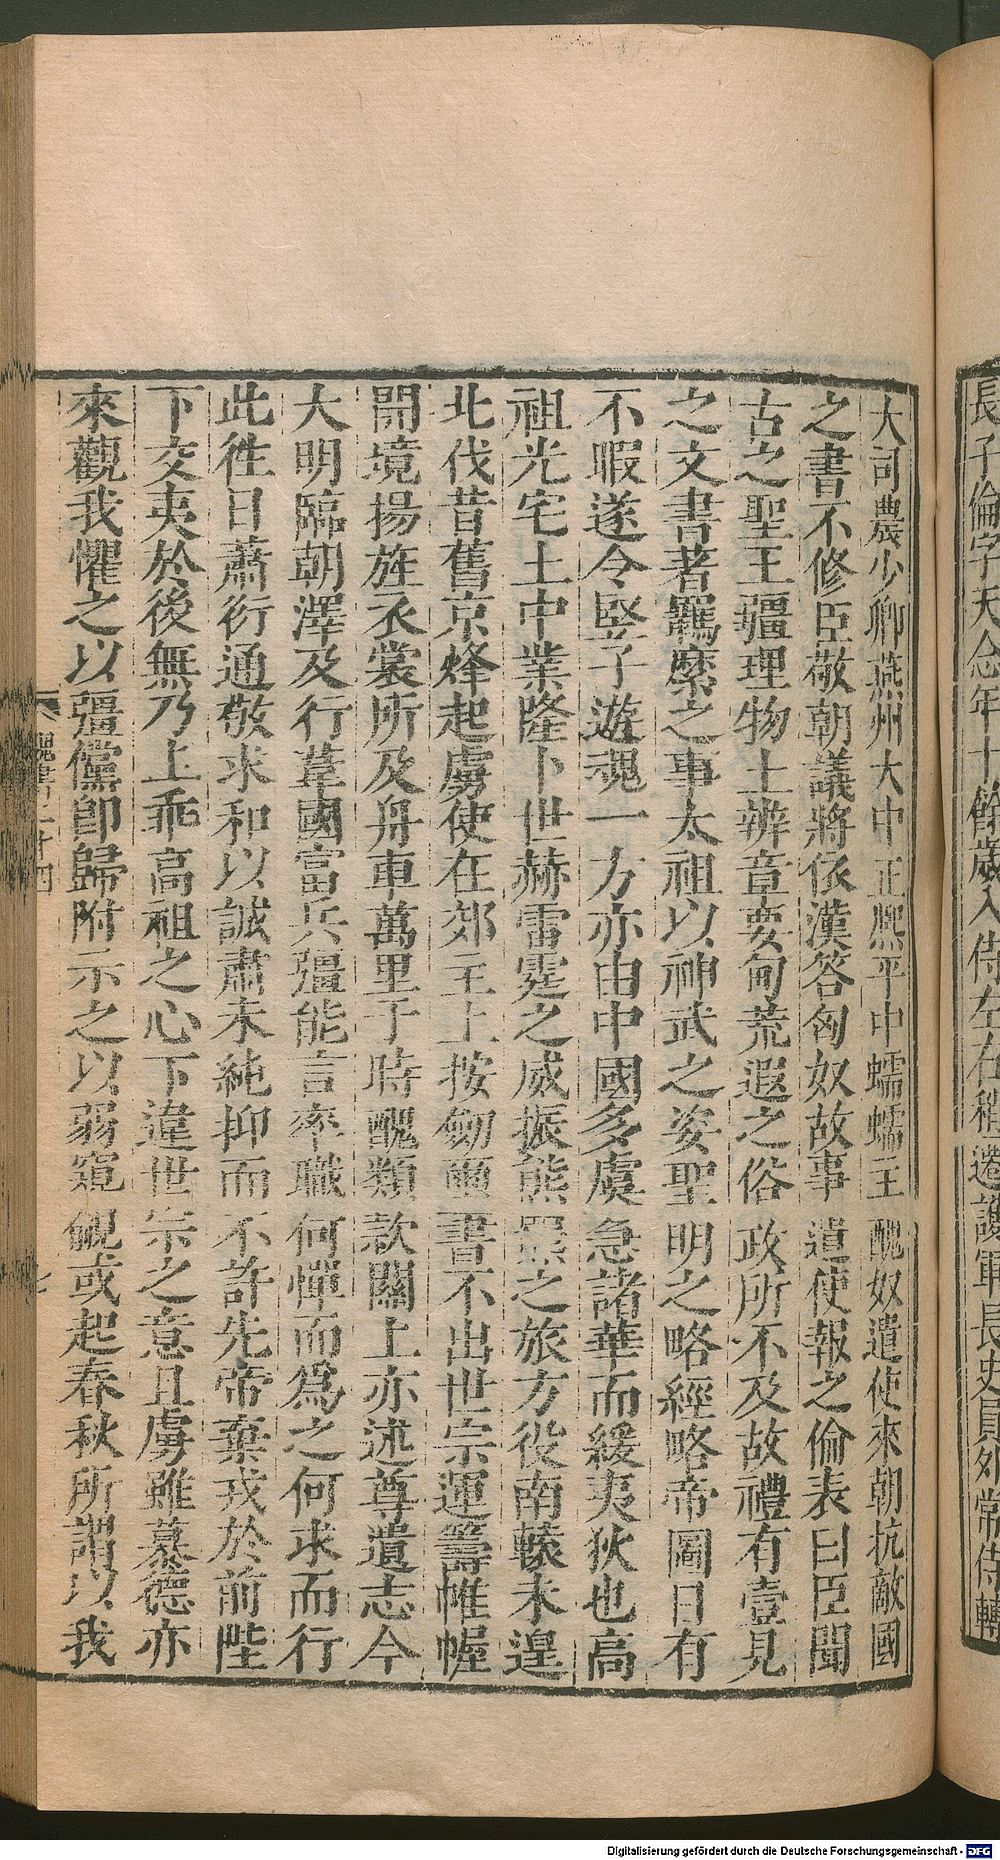 長子倫字天念年十餘歲入侍左右稍遷護軍長史員外常侍轉
大司農少卿燕州大中正熙平中蠕蠕王醜奴遣使來朝抗敵國
之書不修臣敬朝議將依漢答匈奴故事遣使報之倫表曰臣聞
古之聖王疆理物土辨章要甸荒遐之俗政所不及故禮有壹見
之文書著羈縻之事太祖以神武之姿聖明之略經略帝圖日有
不暇遂令竪子遊魂一方亦由中國多虞急諸華而緩夷狄也高
祖光宅土中業隆卜世赫雷霆之威振熊羆之旅方役南轅未遑
北伐昔舊京烽起虜使在郊主上按劒璽書不出世宗運籌帷幄
開境揚旌衣裳所及舟車萬里于時醜類款關上亦述尊遺志今
大明臨朝澤及行葦國富兵彊能言率職何憚而爲之何求而行
此徃日蕭衍通敬求和以誠肅未純抑而不許先帝棄戎於前陛
下交夷於後無乃上乖高祖之心下違世宗之意且虜雖慕德亦
來觀我懼之以彊儻卽歸附示之以弱窺覦或起春秋所謂以我
魏書二十四
七
Digitalisierung gefördert durch die Deutsche Forschungsgemeinschaft - DFG